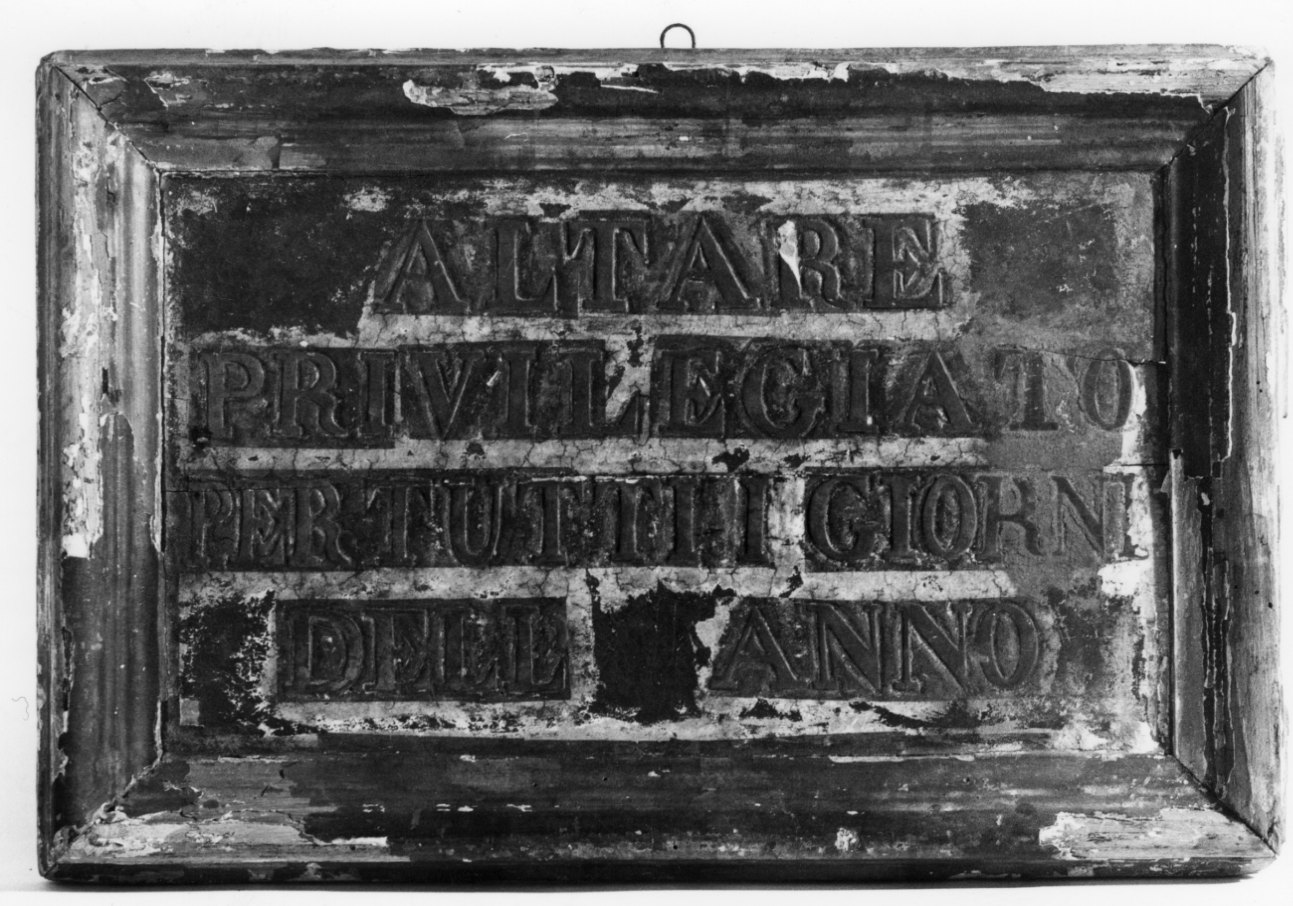 ALTARE
PRIVILEGIATO
PER TUTTI I GIORNI
DELL ANNO